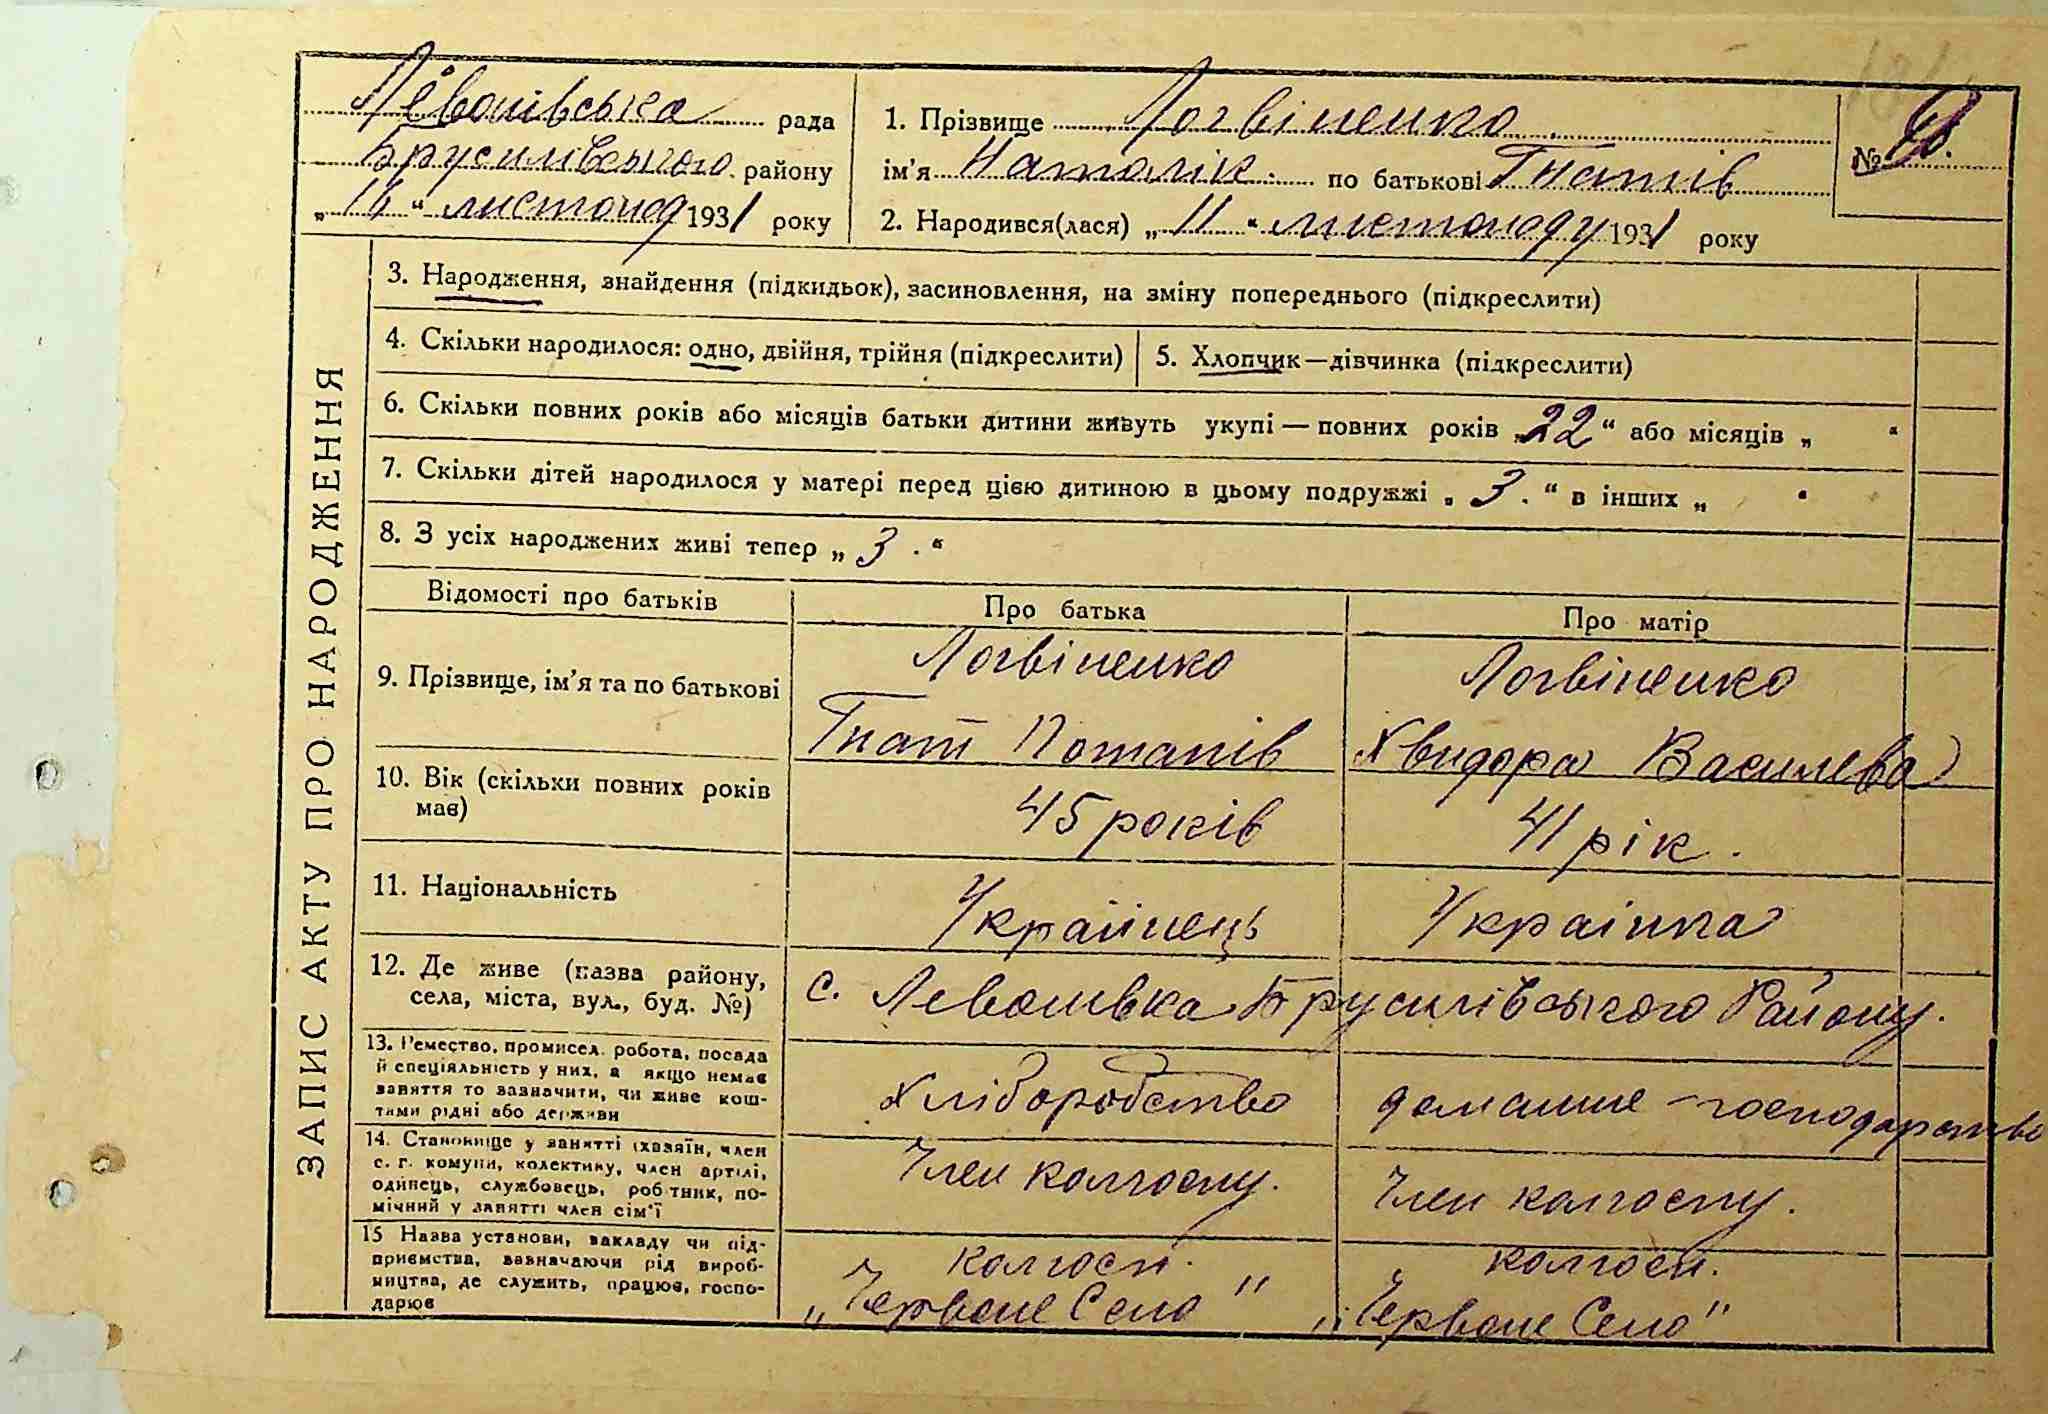 Левонівська рада
Брусилівського району
„16“ листопад 1931 року
1. Прізвище Логвіненко
ім'я Наталік. по батькові Гнатів
2. Народився(лася) „11“ листопаду 1931 року
№
ЗАПИС АКТУ ПРО НАРОДЖЕННЯ
3. Народження, знайдення (підкидьок), засиновлення, на зміну попереднього (підкреслити)
4. Скільки народилося: одно, двійня, трійня (підкреслити)
5. Хлопчик—дівчинка (підкреслити)
6. Скільки повних років або місяців батьки дитини живуть укупі — повних років „22“ або місяців „ “
7. Скільки дітей народилося у матері перед цією дитиною в цьому подружжі „ 3. “ в інших „ “
8. З усіх народжених живі тепер „ 3. “
Відомості про батьків
Про батька
Про матір
9. Прізвище, ім'я та по батькові
Логвіненко
Гнат Потапів
Логвіненко
Хвидора Василева
10. Вік (скільки повних років
має)
45 років
41 рік.
11. Національність
Украйінець
Украінка
12. Де живе (назва району,
села, міста, вул., буд. №)
с. Левонівка Брусилівського Району.
13. Ремество, промисел, робота, посада
й спеціяльність у них, а якщо немає
заняття то зазначити, чи живе кош-
тами рідні або держави
Хліборобство
домашнє - господарство
14. Становище у занятті (хазяїн, член
с. г. комуни, колективу, член артілі,
одинець, службовець, робітник, по-
мічний у занятті член сім'ї
Член колгоспу.
Член колгоспу.
15 Назва установи, закладу чи під-
приємства, зазначаючи рід вироб-
ництва, де служить, працює, госпо-
дарює
колгосп.
„Червоне Село"
колгосп.
„Червоне Село"